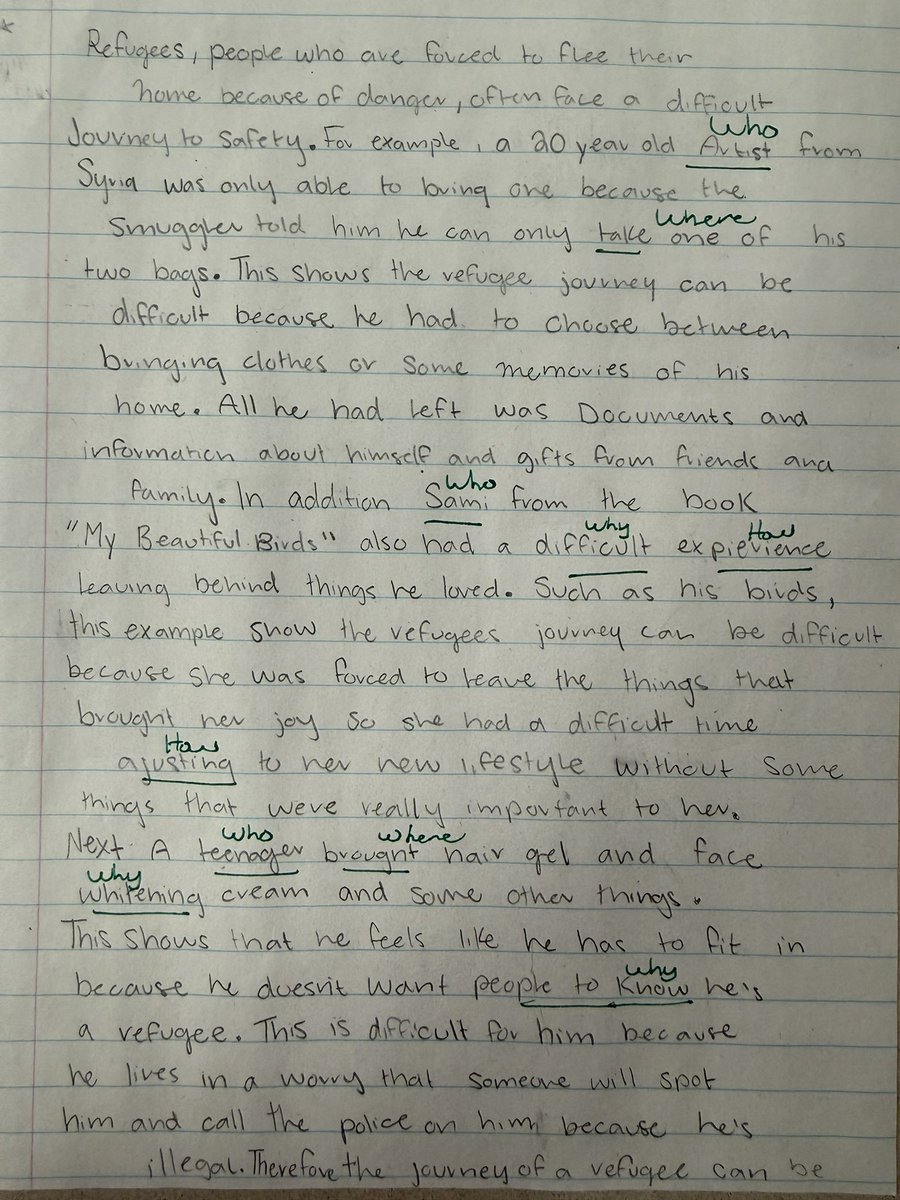 Refugees, people who are forced to flee their
home because of danger, often face a difficult
Who
Journey to safety. For example, a 20 year old Artist from
Syria was only able to bring one because the
Where
smuggler told him he can only take one of his
two bags. This shows the refugee journey can be
difficult because he had to choose between
bringing clothes or some memories of his
home. All he had left was Documents and
information about himself and gifts from friends and
Who
family. In addition Sami from the book
why How
"My Beautiful Birds" also had a difficult expierience
leaving behind things he loved. Such as his birds,
this example show the refugees journey can be difficult
because she was forced to leave the things that
brought her joy so she had a difficult time
How
ajusting to her new lifestyle without some
things that were really important to her.
who where
Next A teenager brought hair gel and face
why
whitening cream and some other things.
This shows that he feels like he has to fit in
why
because he doesn't want people to know he's
a refugee. This is difficult for him because
he lives in a worry that someone will spot
him and call the police on him because he's
illegal. Therefore the journey of a refugee can be